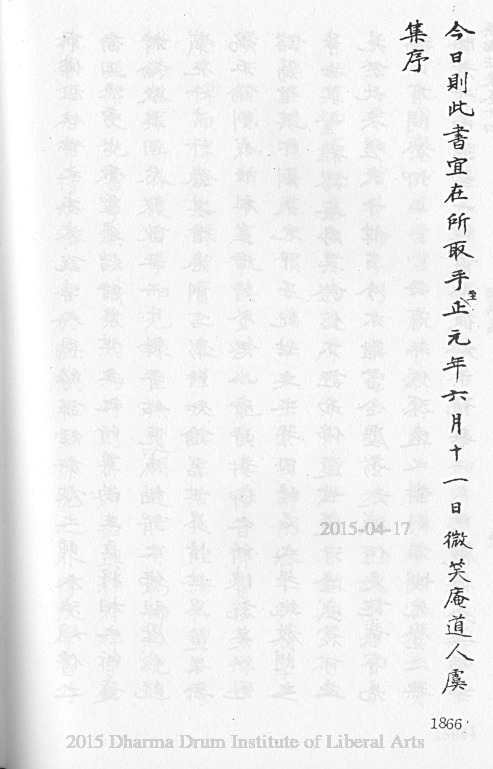 今日則此書宜在所取乎至正元年六月十一日微笑庵道人虞
集序
2015-04-17
1866
2015 Dharma Drum Institute of Liberal Arts